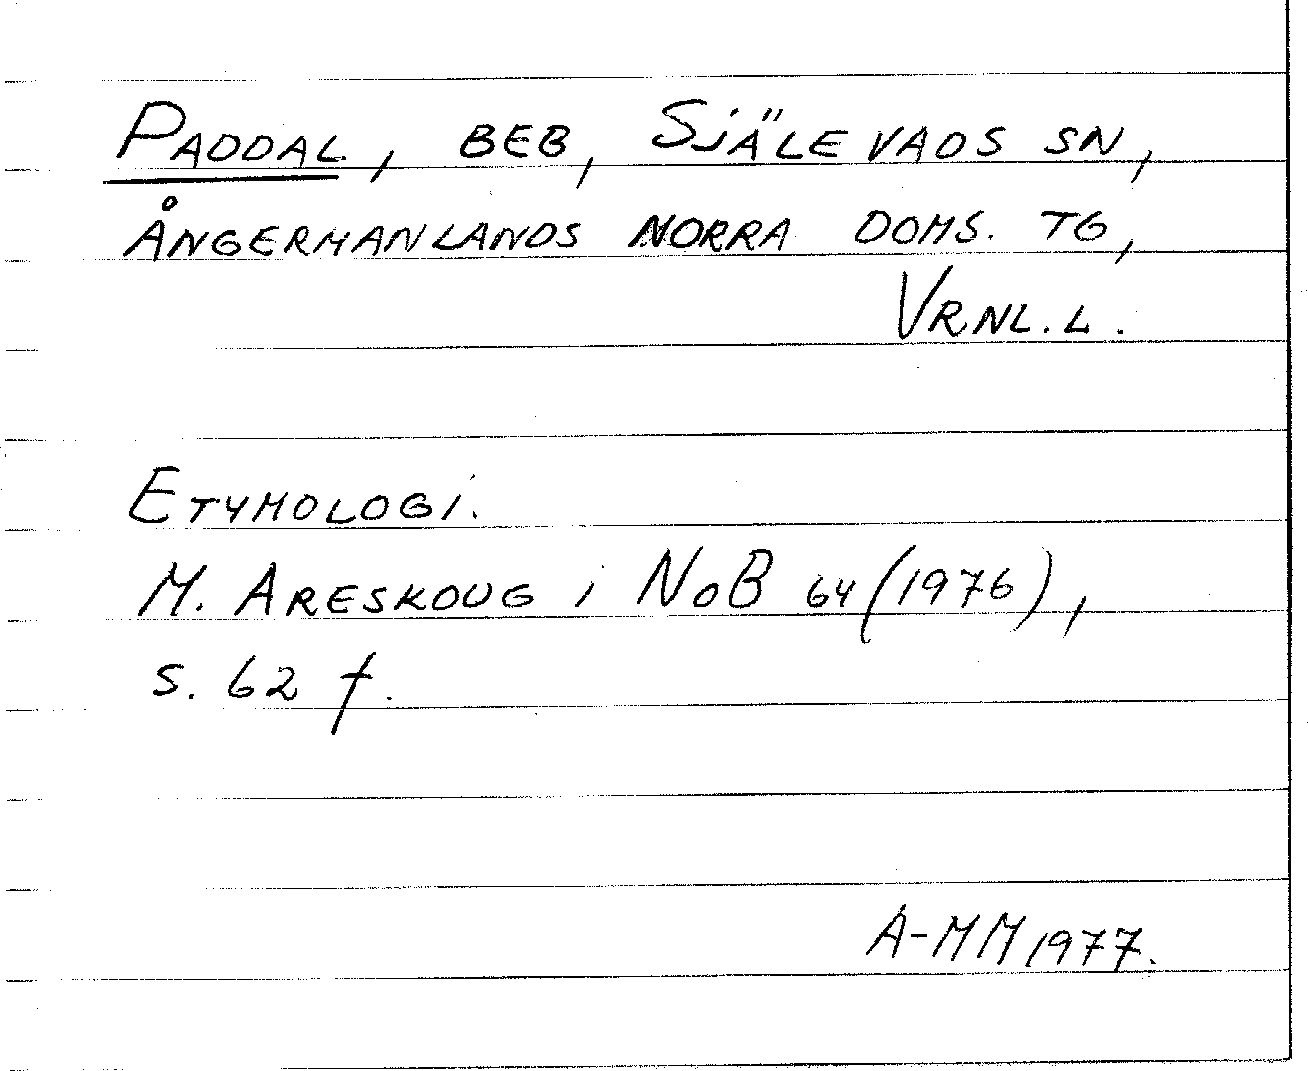 PADDAL, BEB, SJÄLEVADS SN,
ÅNGERMANLANDS NORRA DOMS. TG,
VRNL. L.
ETYMOLOGI.
M. ARESKOUG i NoB 64 (1976),
s. 62 f.
A-MM 1977.